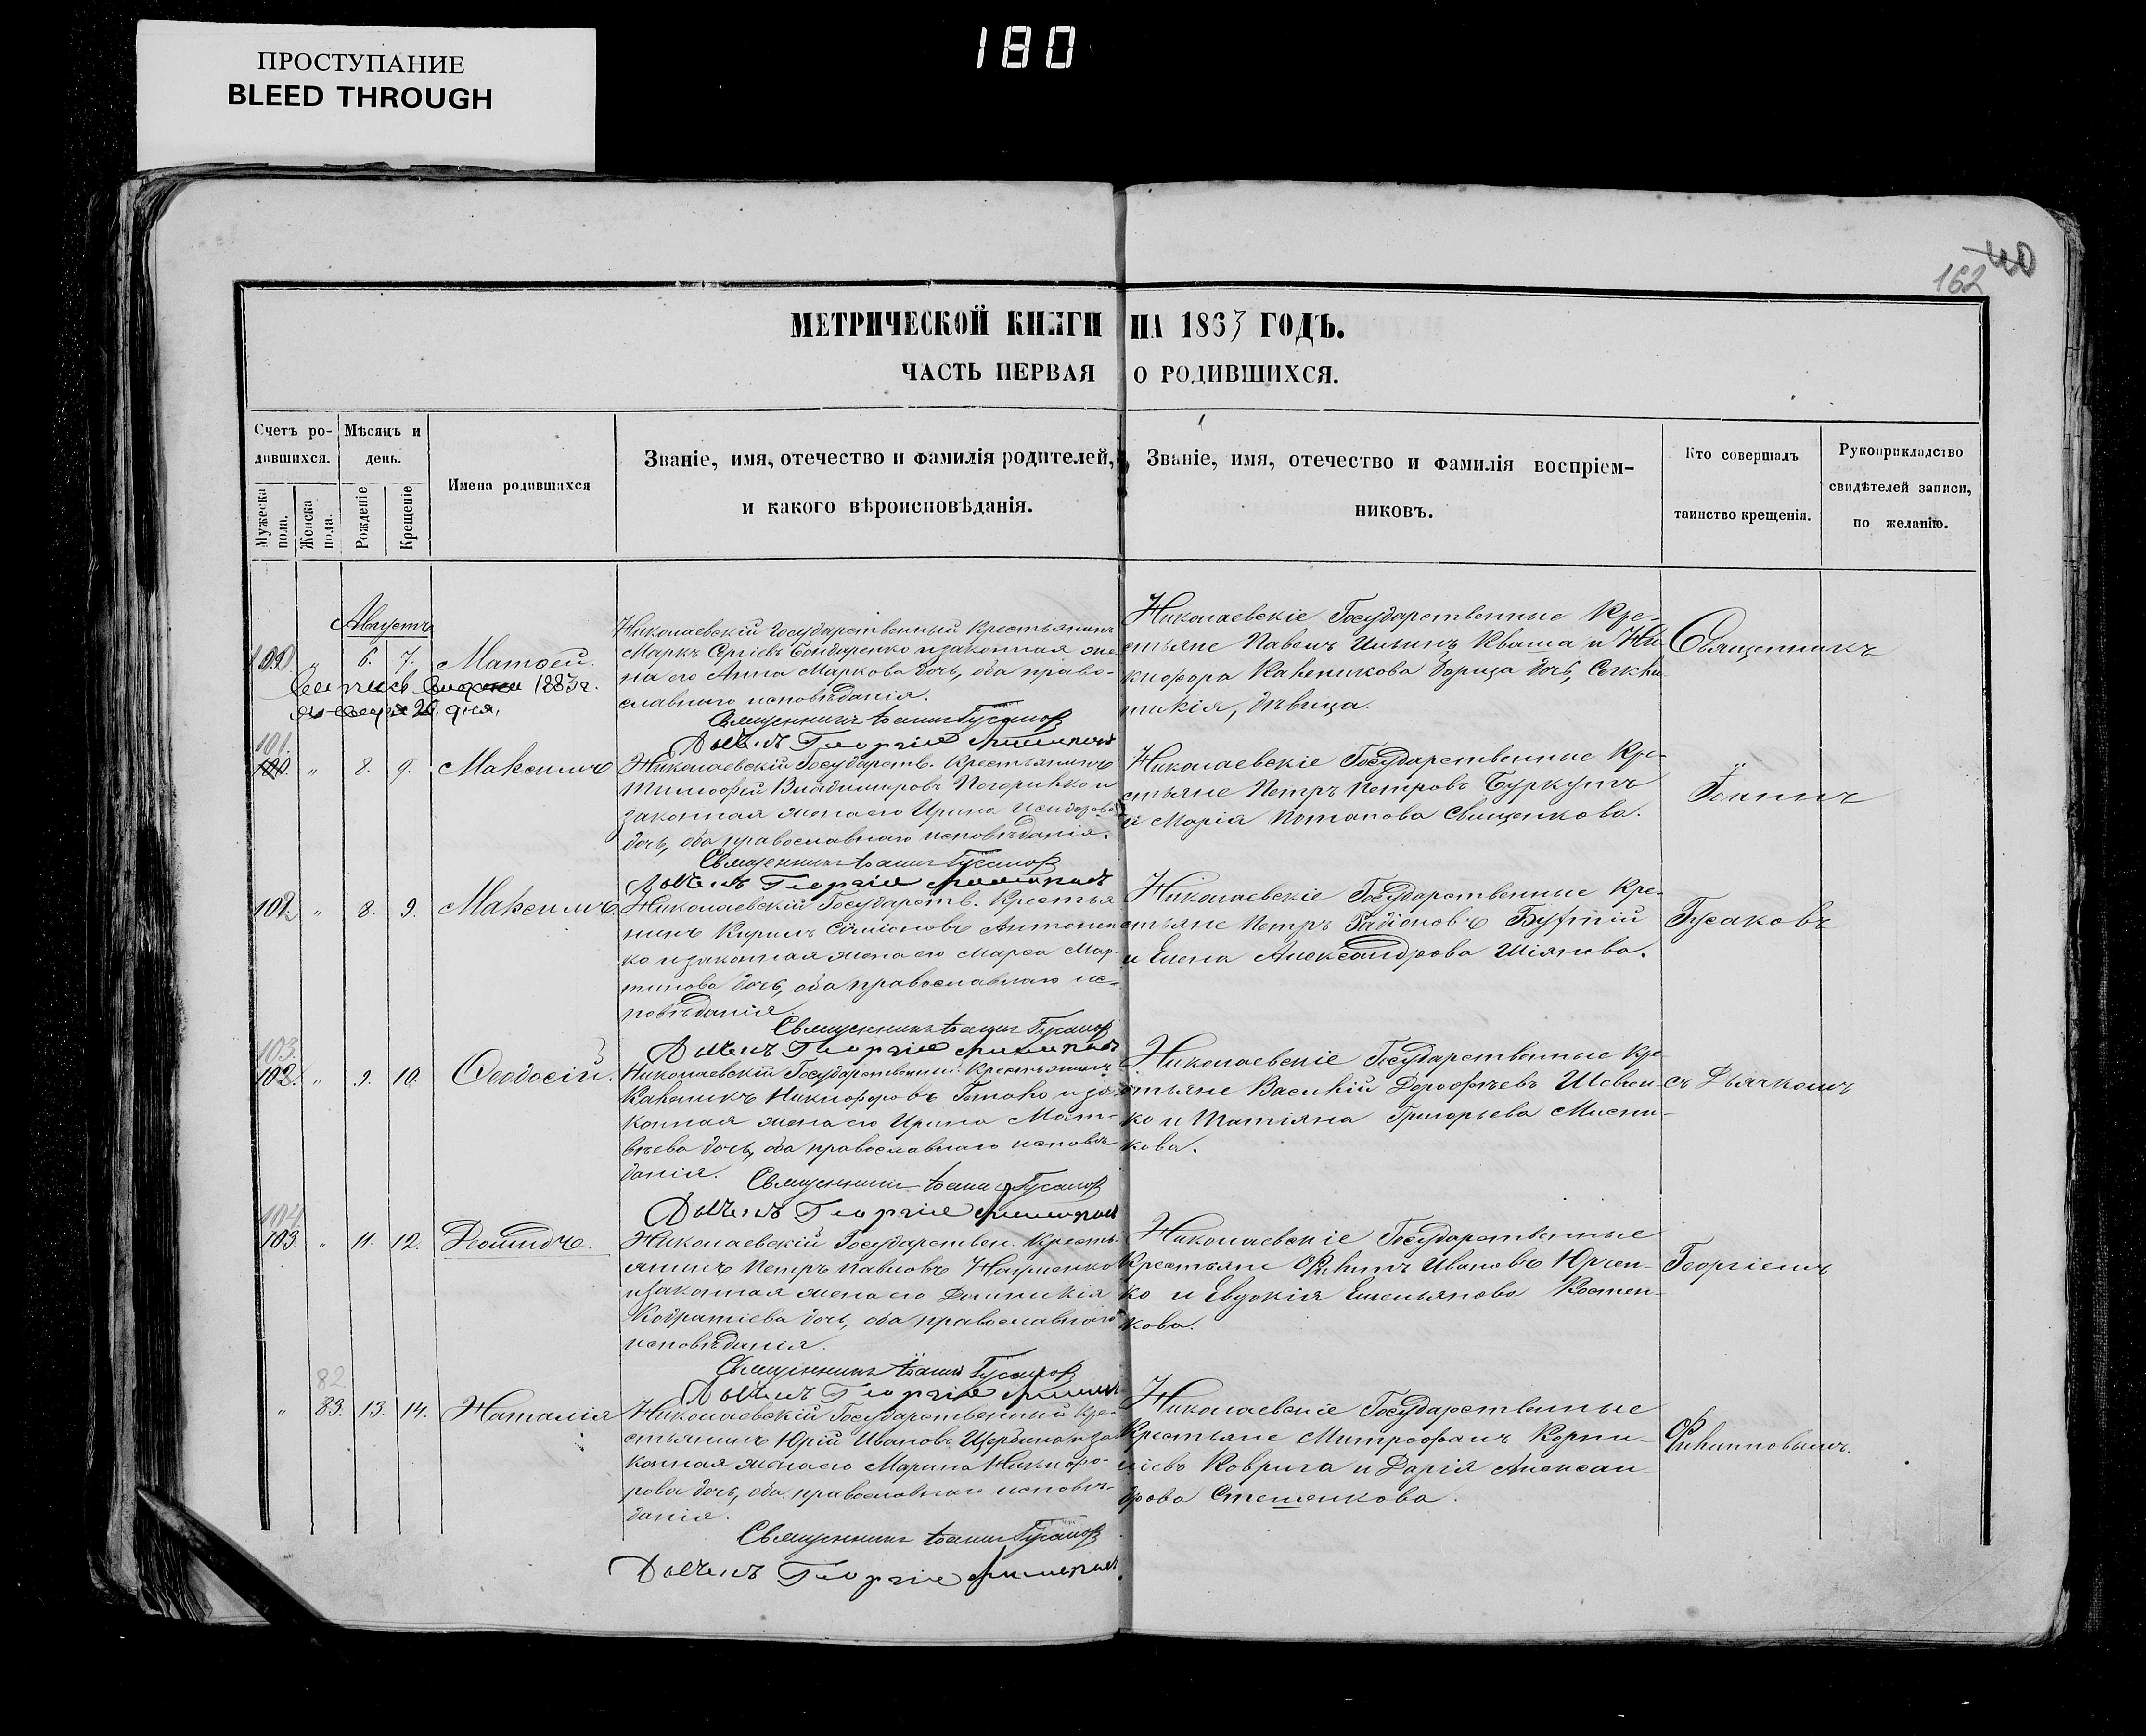 180
ПРОСТУПАНИЕ
BLEED THROUGH
40
162
МЕТРИЧЕСКОЙ КНИГИ НА 1863 ГОДЪ.
ЧАСТЬ ПЕРВАЯ О РОДИВШИХСЯ.
Счетъ ро-
дившихся.
Мужеска пола.
Женска пола.
Мѣсяцъ и
день.
Рожденіе
Крещеніе
Имена родившихся
Званіе, имя, отечество и фамилія родителей,
и какого вѣроисповѣданія.
Званіе, имя, отечество и фамилія воспріем-
никовъ.
Кто совершалъ
таинство крещенія.
Рукоприкладство
свидѣтелей записи,
по желанію.
Августъ
100. " 6. 7. Матѳей.
1883 г.
Николаевскій Государственный Крестьянинъ
Маркъ Сергіевъ Бондаренко и законная же-
на его Анна Маркова дочь, оба право-
славнаго исповѣданія.
Священникъ Іоаннъ Гусаковъ
Дьячекъ Георгій
Николаевскіе Государственные Кре-
стьяне Павелъ Ильинъ Кваша и Ни-
кифора Каленикова дочь,
дѣвица.
Священникъ
101.
100. " 8. 9. Максимъ
Николаевскій Государств. Крестьянинъ
Тимофей Владимировъ и
законная жена его Ирина Исидорова
дочь, оба православнаго исповѣданія.
Священникъ Іоаннъ Гусаковъ
Дьячекъ Георгій
Николаевскіе Государственные Кре-
стьяне Петръ Петровъ Буркутъ
и Марія Потапова Свищенкова.
Іоаннъ
102. " 8. 9. Максимъ.
Николаевскій Государств. Крестья-
нинъ Кирилъ Симіоновъ Антонен-
ко и законная жена его Марѳа Мар-
тинова дочь, оба православнаго ис-
повѣданія.
Священникъ Іоаннъ Гусаковъ
Дьячекъ Георгій
Николаевскіе Государственные Кре-
стьяне Петръ Радіоновъ
и Елена Александрова Шіянова.
Гусаковъ
103.
102. " 9. 10. Ѳеодосій.
Николаевскій Государственный Крестьянинъ
Каленикъ Никифоровъ и за-
конная жена его Ирина Мат-
вѣева дочь, оба православнаго исповѣ-
данія.
Священникъ Іоаннъ Гусаковъ
Дьячекъ Георгій
Николаевскіе Государственные Кре-
стьяне Василій Дорофѣевъ Шевчен-
ко и Татіяна Григорьева
кова.
съ Дьячкомъ
104.
103. " 11. 12. Діомидъ.
Николаевскій Государствен. Кресть-
янинъ Петръ Павловъ Науменко
и законная жена его Домникія
Кодратіева дочь, оба православнаго
исповѣданія.
Священникъ Іоаннъ Гусаковъ
Дьячекъ Георгій
Николаевскіе Государственные
Крестьяне Филипъ Ивановъ Юрчен-
ко и Евдокія Емельянова Костен-
кова.
Георгіемъ
82
" 83. 13. 14. Наталія
Николаевскій Государственный Кре-
стьянинъ Юрій Ивановъ Щербина и за-
конная жена его Марина Никифо-
рова дочь, оба православнаго исповѣ-
данія.
Священникъ Іоаннъ Гусаковъ
Дьячекъ Георгій
Николаевскіе Государственные
Крестьяне Митрофанъ Корни-
ліевъ Коврига и Дарія Алексан-
дрова Стешенкова.
Филипповымъ.